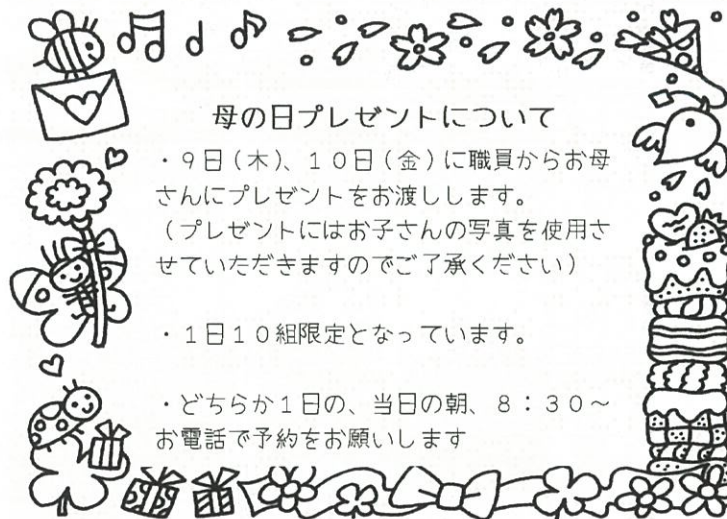 母の日プレゼントについて
・9日(木)、10日(金)に職員からお母
さんにプレゼントをお渡しします。
(プレゼントにはお子さんの写真を使用さ
せていただきますのでご了承ください)
・1日10組限定となっています。
・どちらか1日の、当日の朝、8:30～
お電話で予約をお願いします